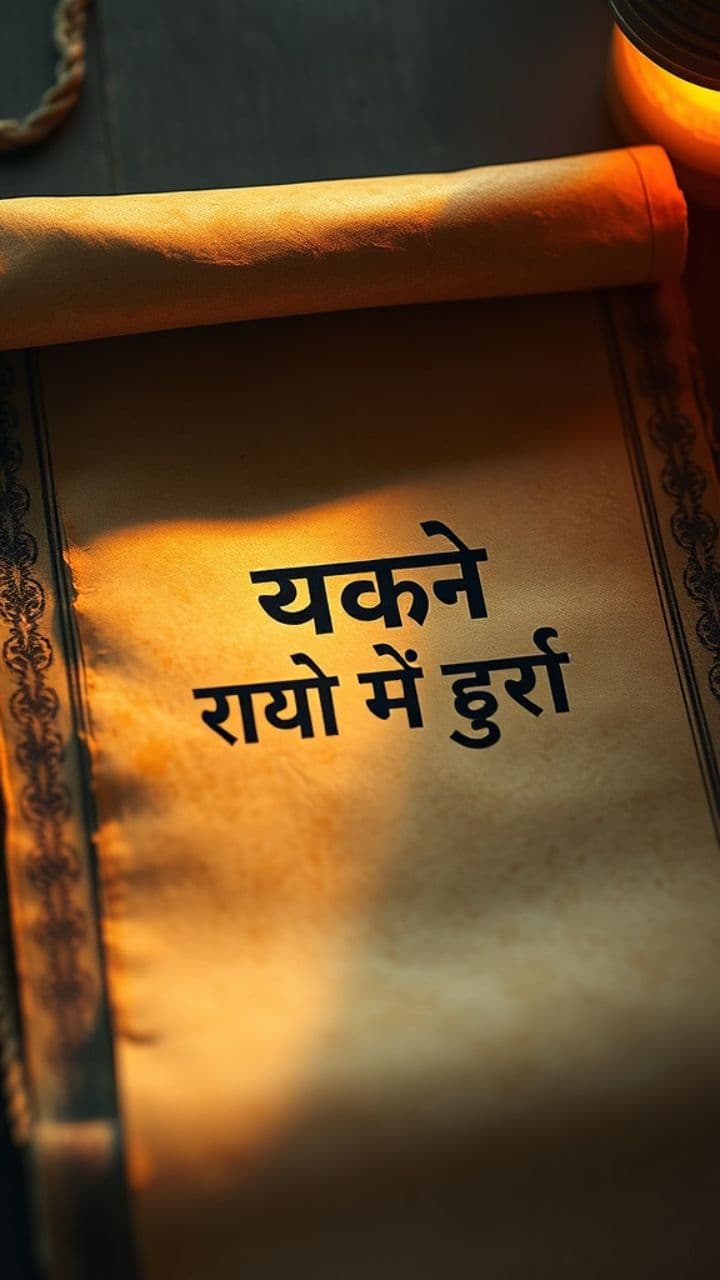 यकने
रायो में डुर्रा